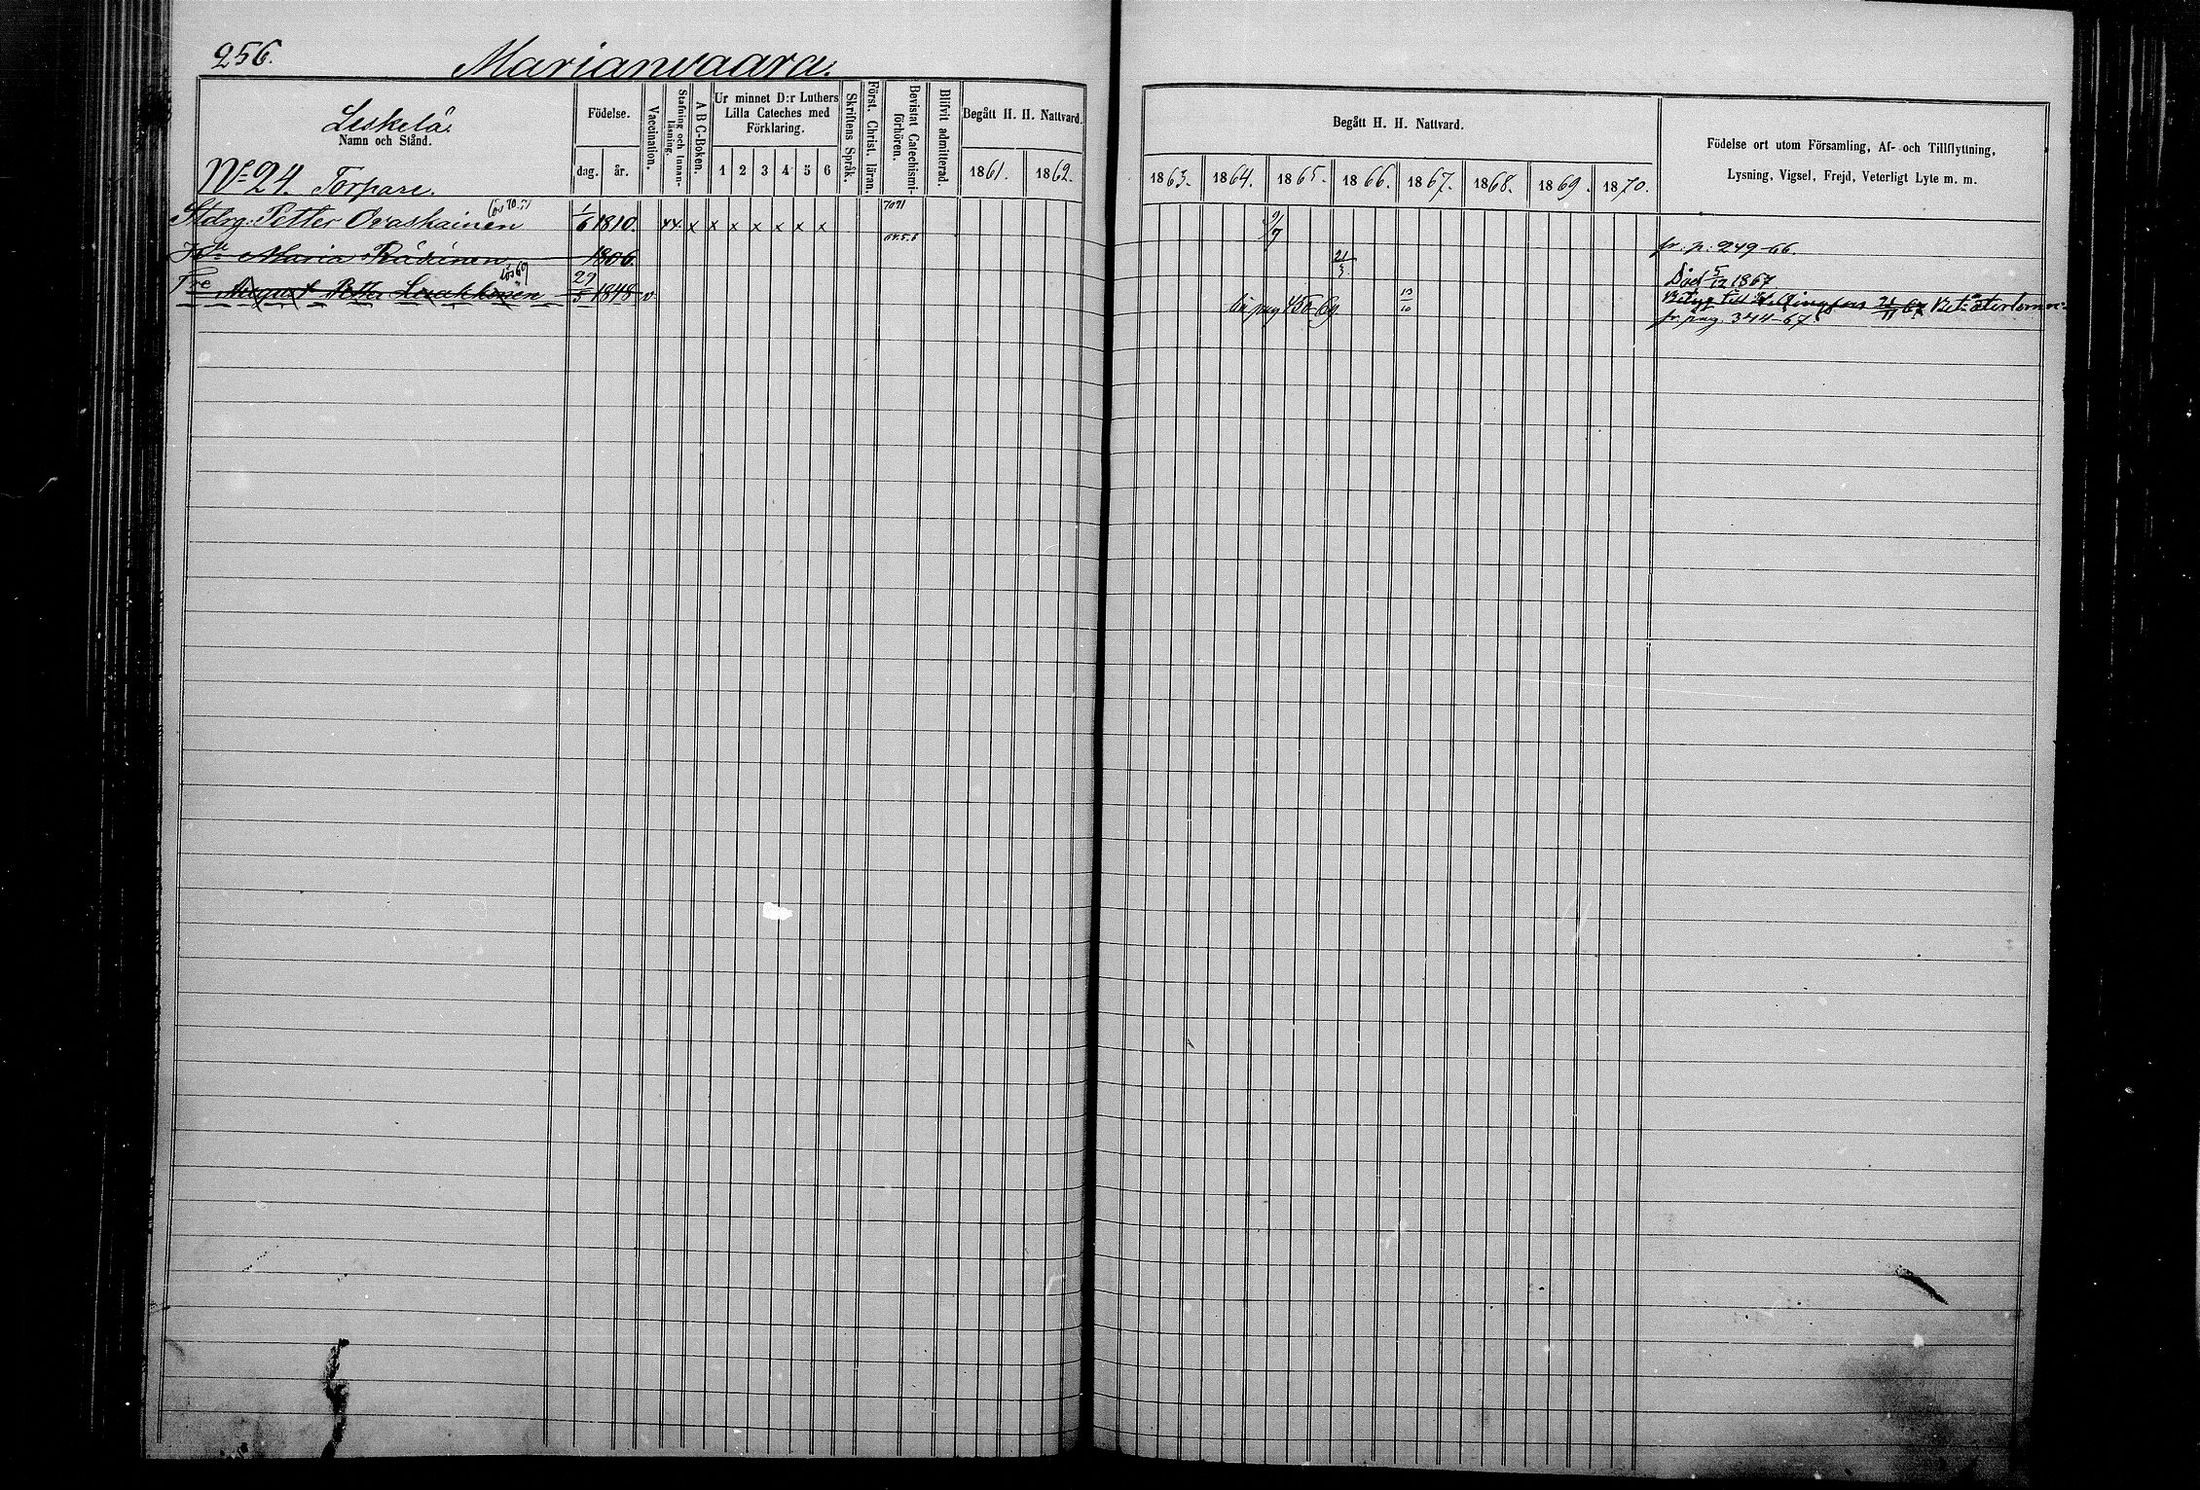 256.
Marianvaara.
Leskelä.
Namn och Stånd.
Födelse.
dag.
år.
Vaccination.
Stafning och Innanläsning.
A B C-Boken.
Ur minnet D:r Luthers
Lilla Cateches med
Förklaring.
1 2 3 4 5 6
Skriftens Språk.
Först. Christ. läran.
Bevistat Catechismiförhören.
Blifvit admitterad.
Begått H. H. Nattvard.
1861. 1862.
Begått H. H. Nattvard.
1863. 1864. 1865. 1866. 1867. 1868. 1869. 1870.
Födelse ort utom Församling, Af- och Tillflyttning,
Lysning, Vigsel, Frejd, Veterligt Lyte m. m.
No 24. Torpare.
Petter Ovaskainen 1/6 1810. x x x x x x x 9/7 fr. p. 249-66.
Maria Räsänen 1806. 21/3 Död 5/12 1867
August Petter 29/5 1848 v 13/10 Betyg till Helsingfors
fr. pag. 344-67